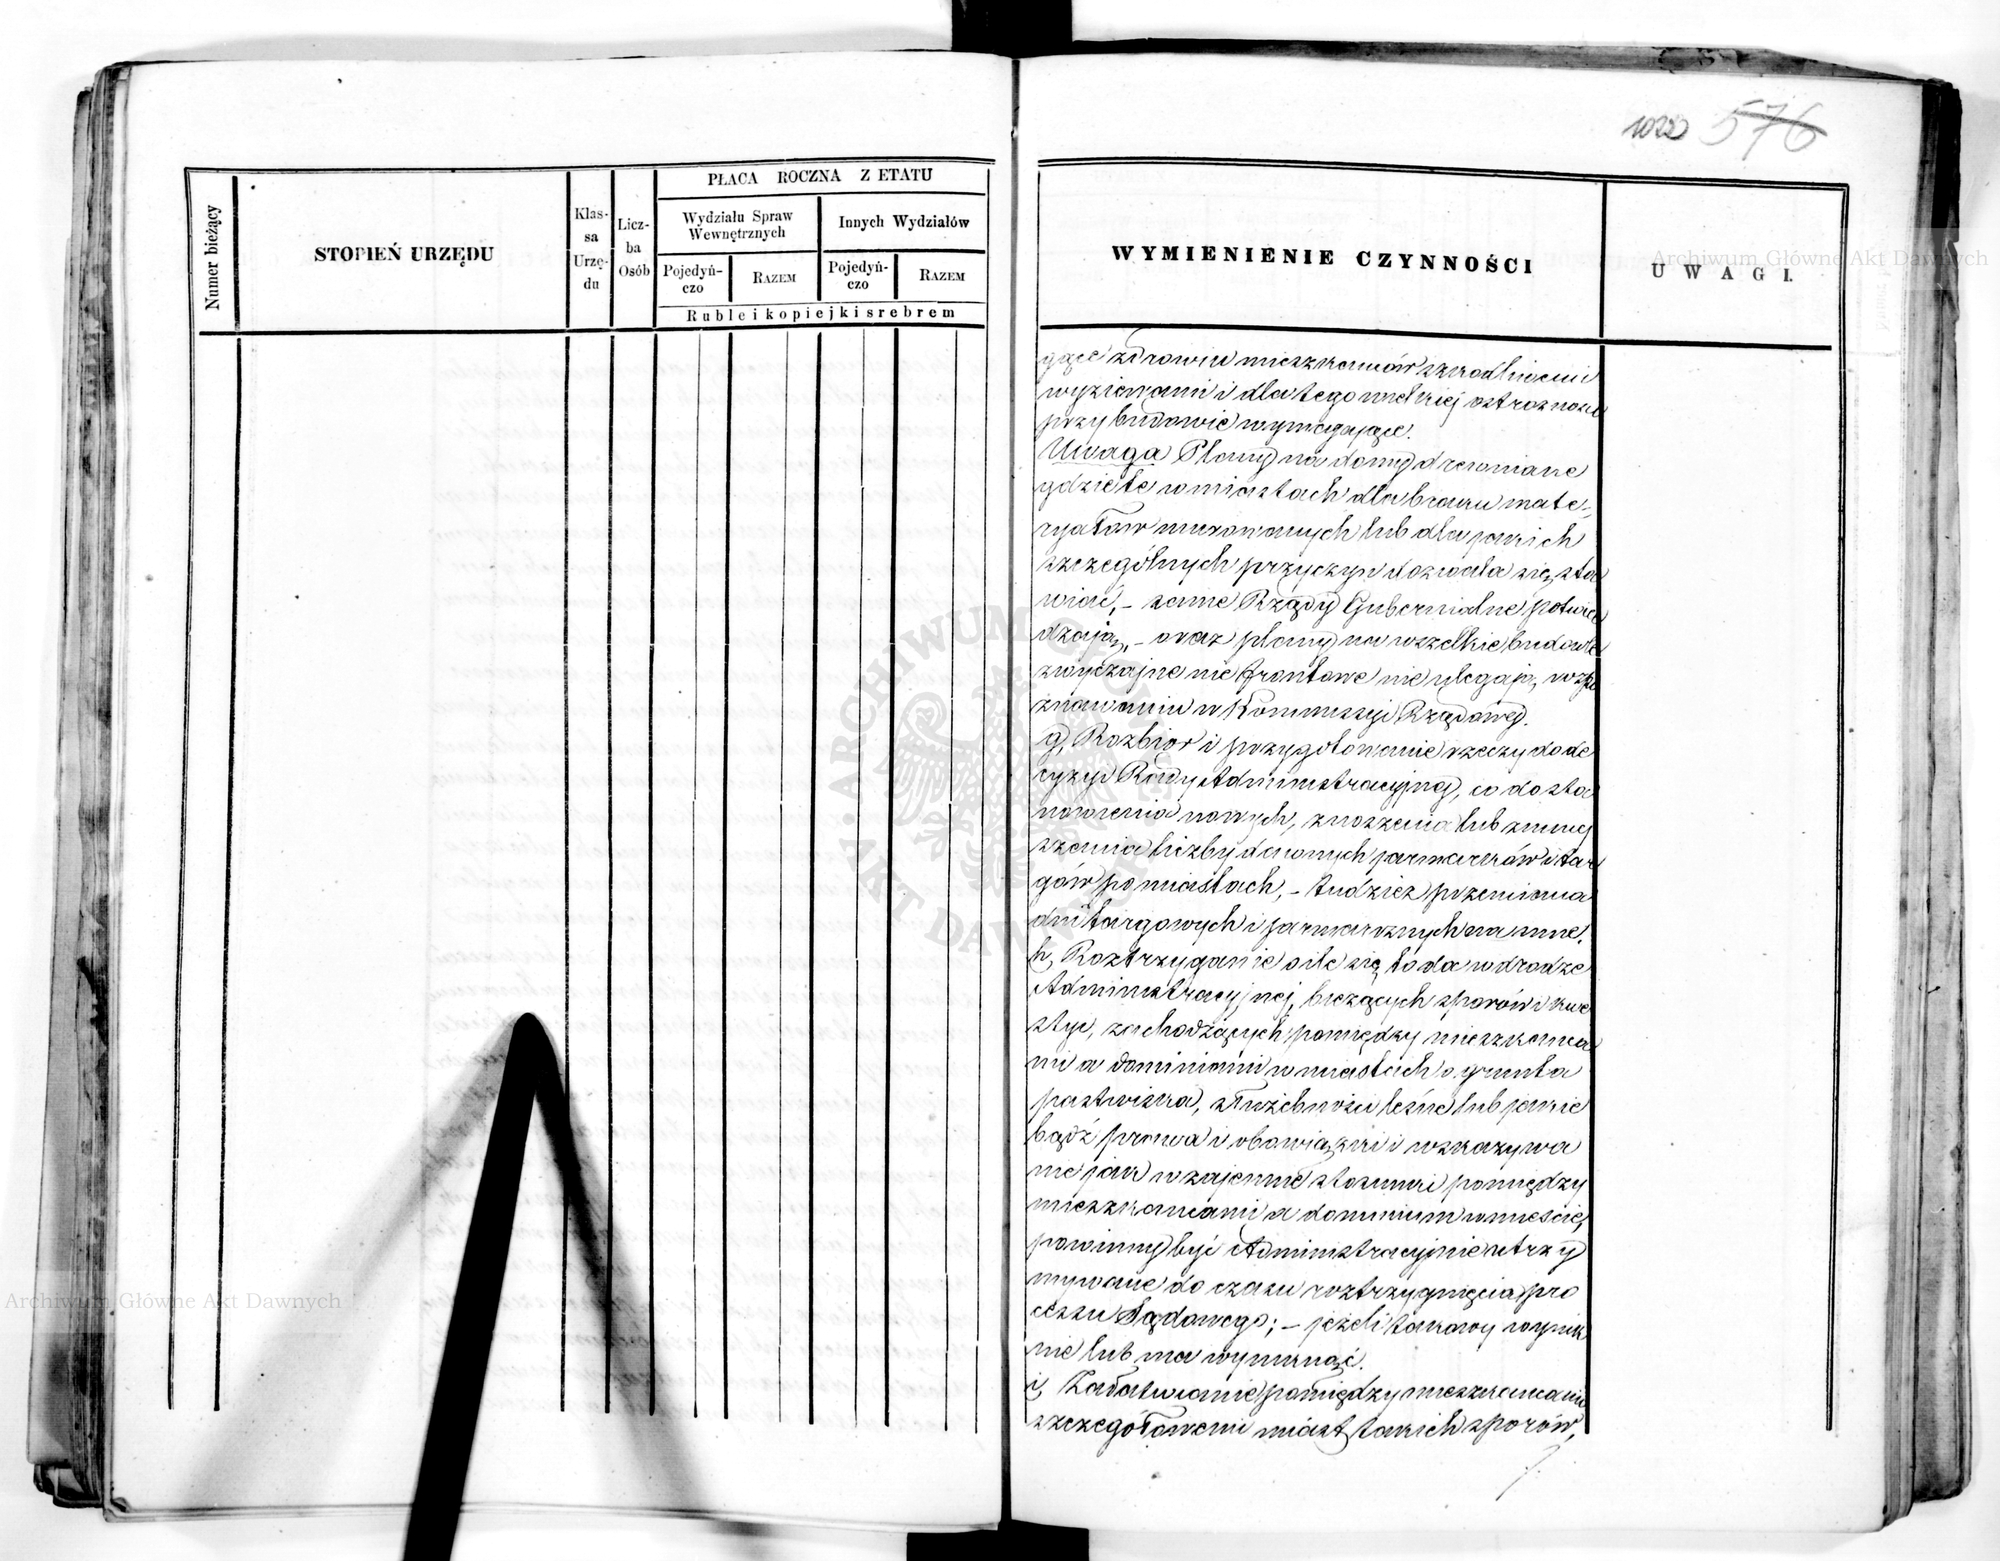 1022 576
Numer bieżący
STOPIEŃ URZĘDU
Klas-
sa
Urzę-
du
Licz-
ba
Osób
PŁACA ROCZNA Z ETATU
Wydziału Spraw
Wewnętrznych
Innych Wydziałów
Pojedyń-
czo
RAZEM
Pojedyń-
czo
RAZEM
Ruble i kopiejki srebrem
WYMIENIENIE CZYNNOŚCI
UWAGI.
gące zdrowiu mieszkańców szkodliwemi
wyziewami i dla tego wielkiej ostrożności
przy budowie wymagające.
Uwaga Plany na domy drewniane
gdzie te w miastach dla braku mate-
ryałów murowanych lub dla jakich
szczególnych przyczyn dozwala się sta
wiać, – same Rządy Gubernialne potwier
dzają, – oraz plany na wszelkie budowle
zwyczajne nie frontowe nie ulegają rozpo
znawaniu w Kommissyi Rządowej.
g, Rozbiór i przygotowanie rzeczy do de
cyzyi Rady Administracyjnej, co do sta
nowienia nowych, znoszenia lub zmniej
szenia liczby dawnych jarmarków i tar
gów po miastach, – tudzież przemiana
dni targowych i jarmarcznych na inne.
h, Roztrzyganie o ile się to da w drodze
Administracyjnej, bieżących sporów i kwe
styi, zachodzących pomiędzy mieszkańca
mi a dominiami w miastach o grunta
pastwiska, służebności leśne lub jakie
bądź prawa i obowiązki i wskazywa
nie jak wzajemne stosunki pomiędzy
mieszkańcami a dominium w mieście,
powinny być Administracyjnie utrzy
mywane do czasu roztrzygnięcia pro
cessu Sądowego; – jeżeli takowy wynik
nie lub ma wyniknąć.
i, Załatwianie pomiędzy mieszkańcami
szczegółowemi miast takich sporów,
Archiwum Główne Akt Dawnych
Archiwum Główne Akt Dawnych
ARCHIWUM GŁÓWNE AKT DAWNYCH